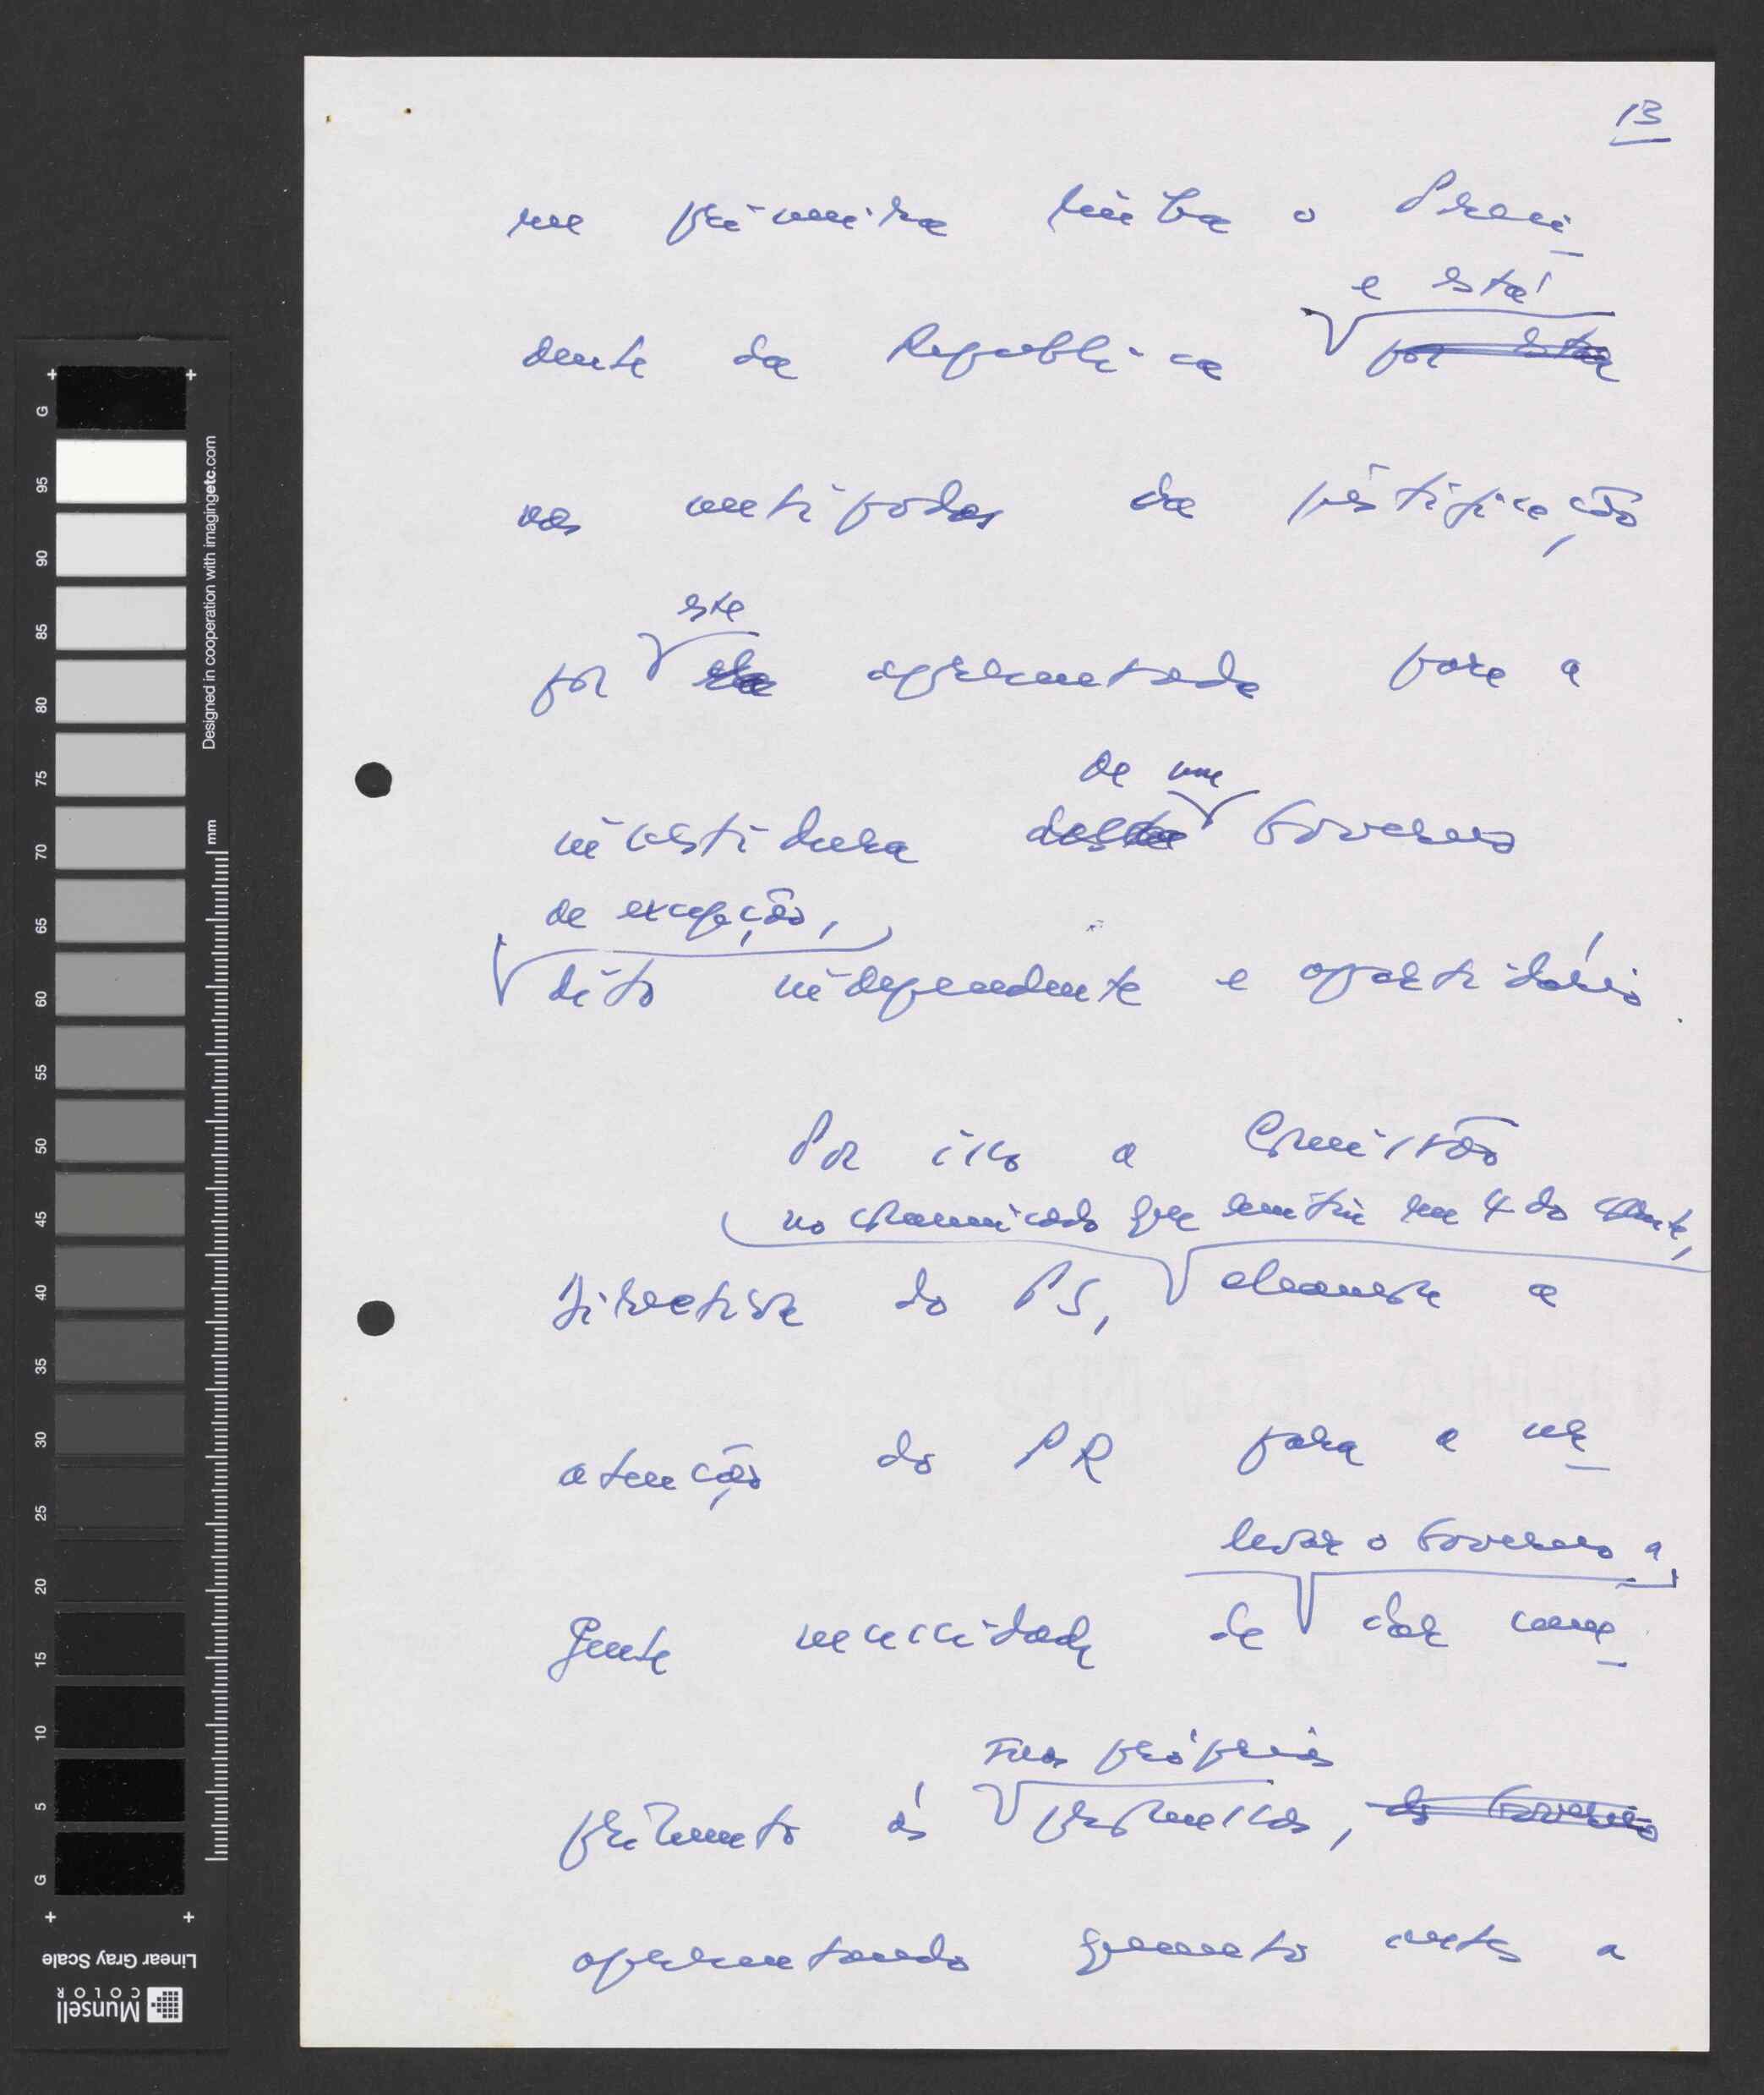 13
em primeira linha o Presi-
e está
dente da Republica por esta
nos antípodas da justificação
este
por ela apresentada para a
de um
investidura deste Governo
de excepção,
dito independente e apartidário
Por isso a Comissão
no comunicado que emitiu em 4 do corrente,
Directiva do PS, chamou a
atenção do PR para a ur-
levar o Governo a
gente necessidade de dar cum-
suas próprias
primento ás promessas, do Governo
apresentando quanto antes a
G
95
90
85
80
75
70
65
60
55
50
45
40
35
30
25
20
15
10
5
G
Designed in cooperation with imagingetc.com
mm
Linear Gray Scale
Munsell
COLOR